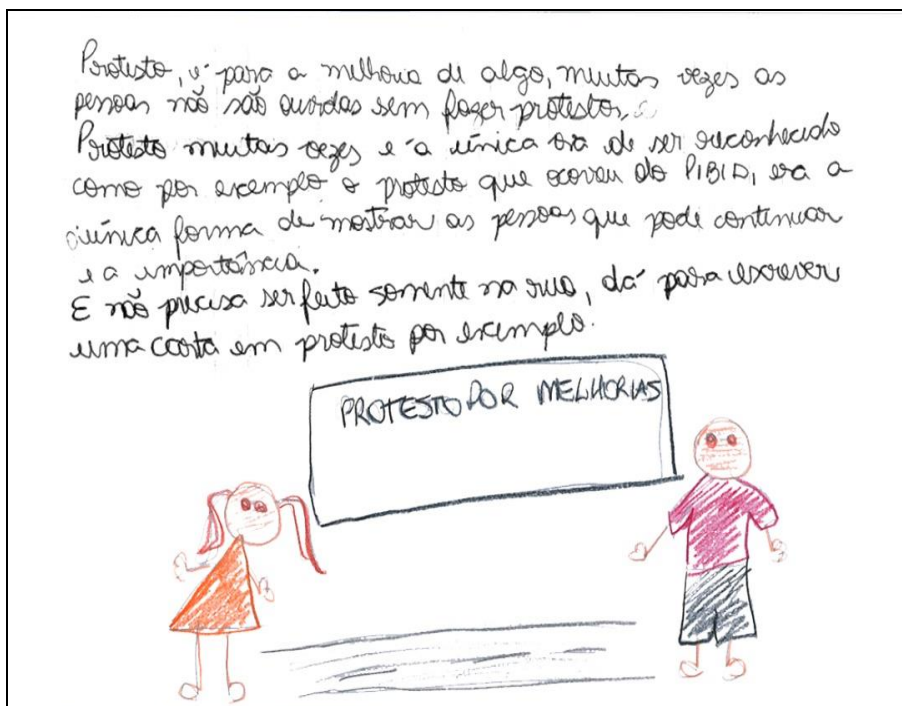 Protesto, é para a melhoria de algo, muitas vezes as
pessoas não são ouvidas sem fazer protestos.
Protesto muitas vezes e a única via de ser reconhecido
como por exemplo o protesto que ocoreu do PIBID, era a
única forma de mostrar as pessoas que pode continuar
e a importância.
E não precisa ser feito somente na rua, dá para escrever
uma carta em protesto por exemplo.
PROTESTO POR MELHORIAS